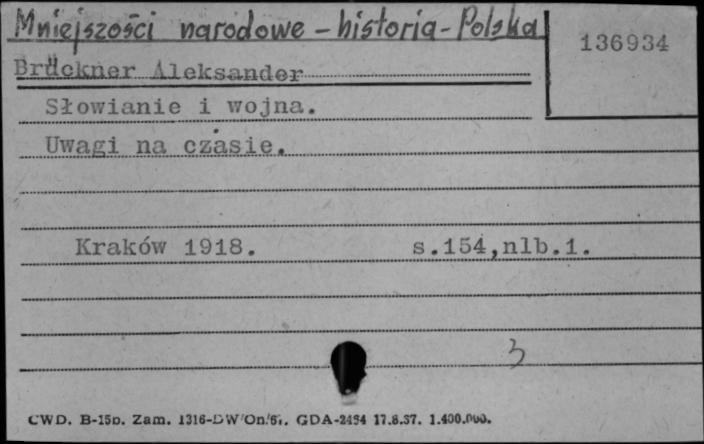 Mniejszości narodowe - historia - Polska
136934
Brückner Aleksander
Słowianie i wojna.
Uwagi na czasie.
Kraków 1918. s.154,nlb.1.
3
CWD. B-15b. Zam. GDA-2454 17.8.57. 1.400.000.